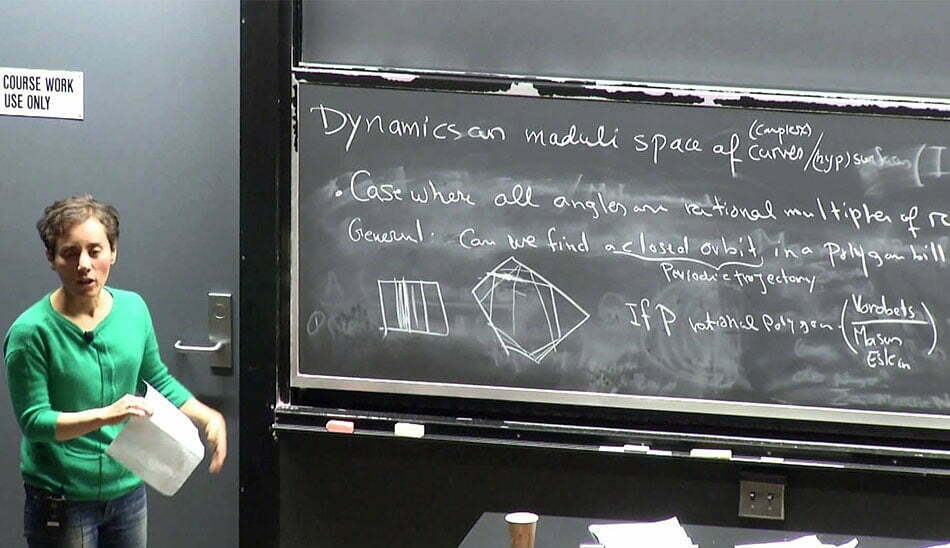 COURSE WORK
USE ONLY
(complex)
Dynamics on moduli space of curves/(hyp) surfaces (
• Case where all angles are rational multiples of
General: Can we find a closed orbit in a polygon bill
Periodic trajectory
If P rational polygon. (Vorobets
Masur
Eskin)